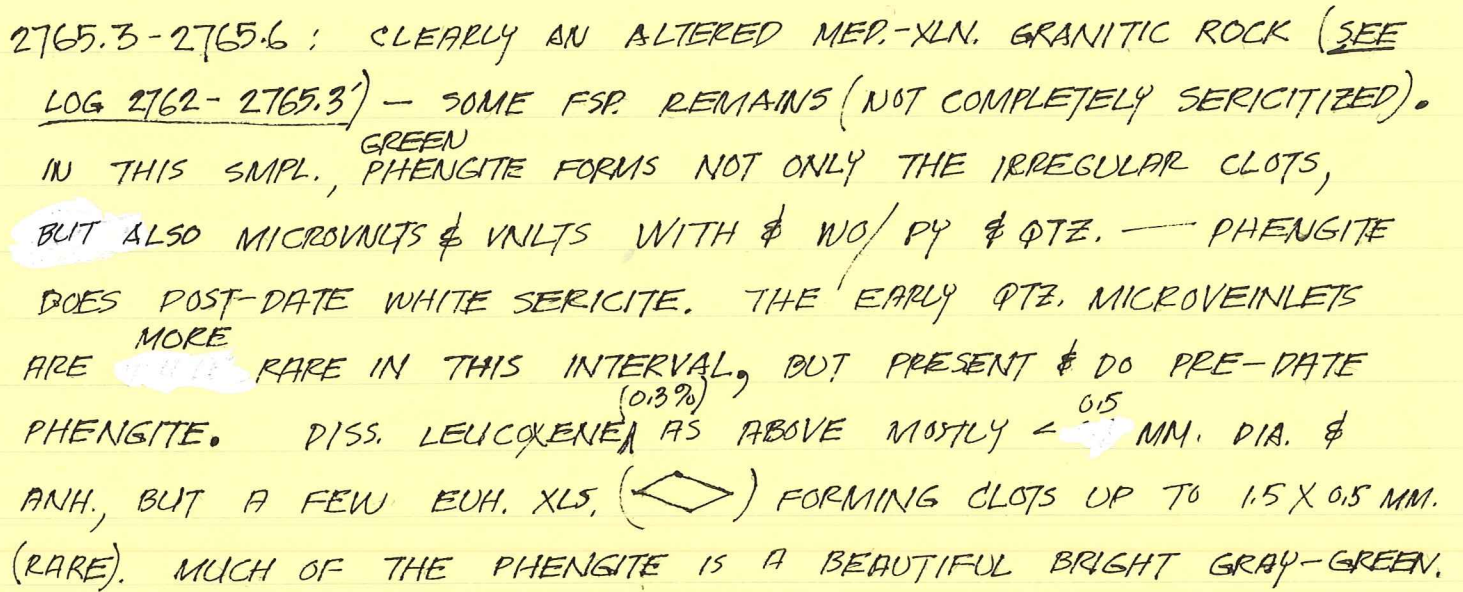 2765.3-2765.6 : CLEARLY AN ALTERED MED.-XLN. GRANITIC ROCK (SEE
LOG 2762-2765.3') — SOME FSP. REMAINS (NOT COMPLETELY SERICITIZED).
GREEN
IN THIS SMPL., PHENGITE FORMS NOT ONLY THE IRREGULAR CLOTS,
BUT ALSO MICROVNLTS & VNLTS WITH & WO/ PY & QTZ. — PHENGITE
DOES POST-DATE WHITE SERICITE. THE EARLY QTZ. MICROVEINLETS
MORE
ARE RARE IN THIS INTERVAL, BUT PRESENT & DO PRE-DATE
(0.3%) 0.5
PHENGITE. DISS. LEUCOXENE AS ABOVE MOSTLY < MM. DIA. &
ANH., BUT A FEW EUH. XLS. ( ) FORMING CLOTS UP TO 1.5 X 0.5 MM.
(RARE). MUCH OF THE PHENGITE IS A BEAUTIFUL BRIGHT GRAY-GREEN.